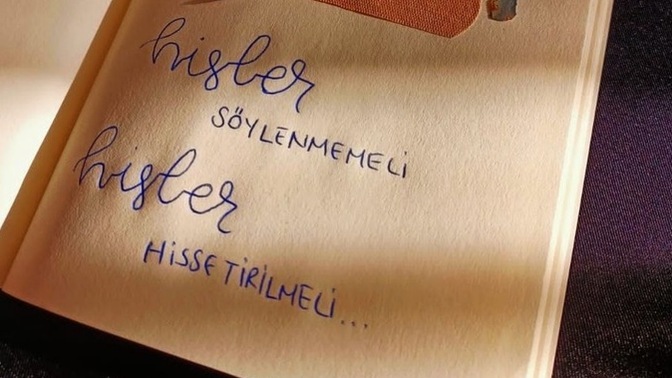 hisler
SÖYLENMEMELİ
hisler
HİSSETİRİLMELİ...